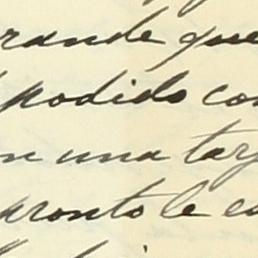 rande que
podido con
n una tarj
pronto le es